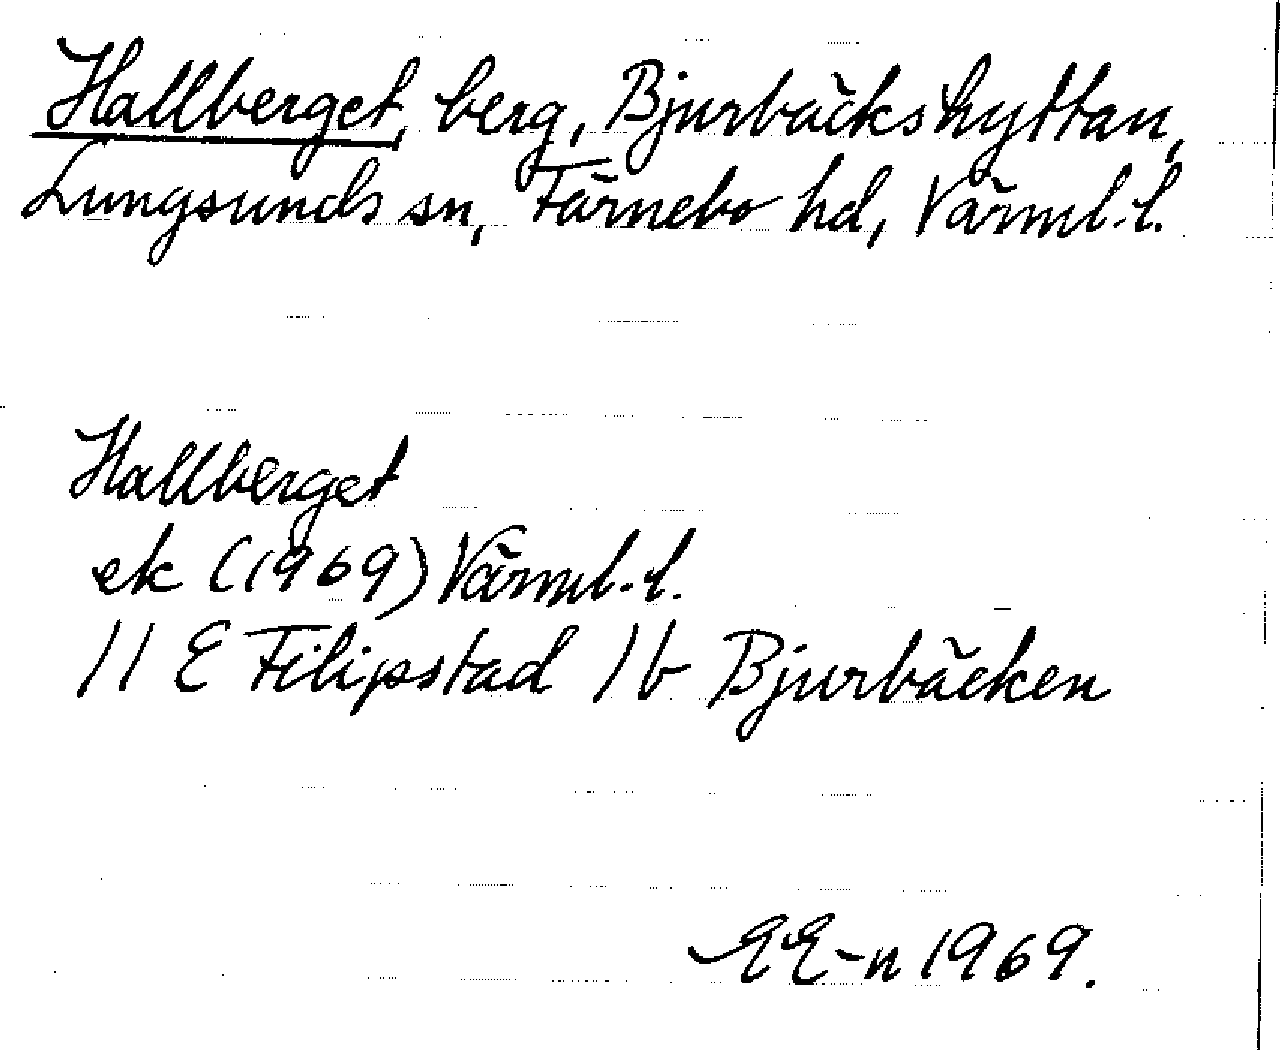 Hallberget, berg, Bjurbäckshyttan,
Lungsunds sn, Färnebo hd, Värml. l.
Hallberget
ek (1969) Värml. l.
11 E Filipstad 1 b Bjurbäcken
EE-n 1969.